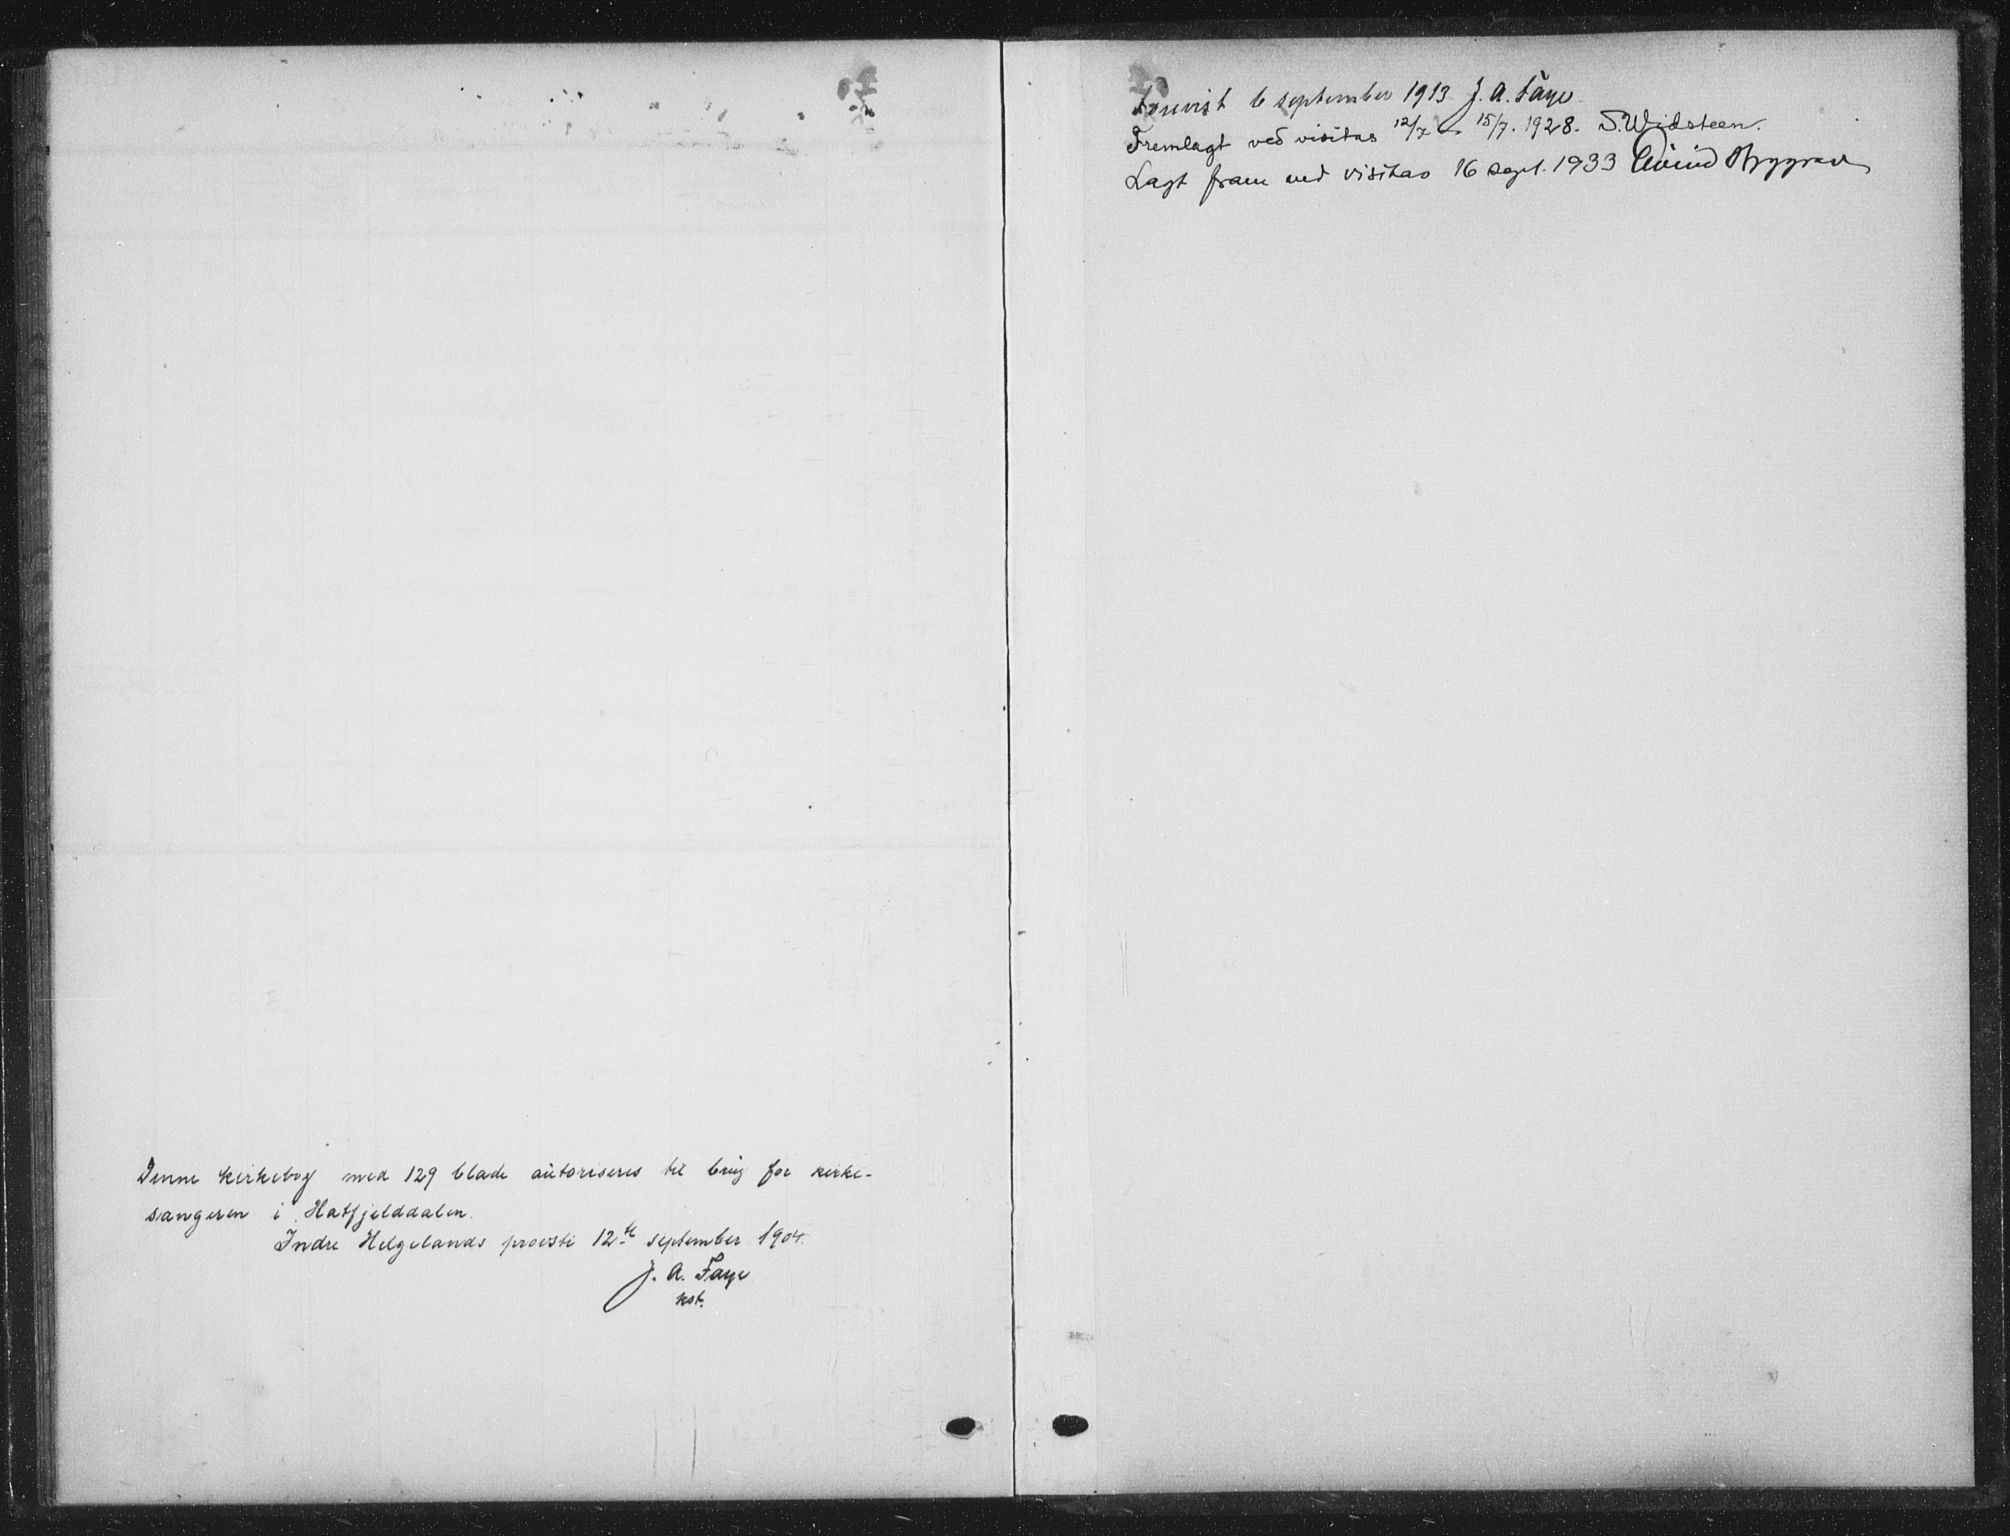 Denne kirkebog med 129 blade autoriseres til brug for kirke-
sangeren i Hatfjelddalen.
Indre Helgelands provsti 12te september 1904.
J. A. Faye
kst.
Forevist 6 september 1913 J. A. Faye
Fremlagt ved visitas 12/7 - 15/7. 1928. S. Widsteen.
Lagt fram ved visitas 16 sept. 1933 Eivind Berggrav